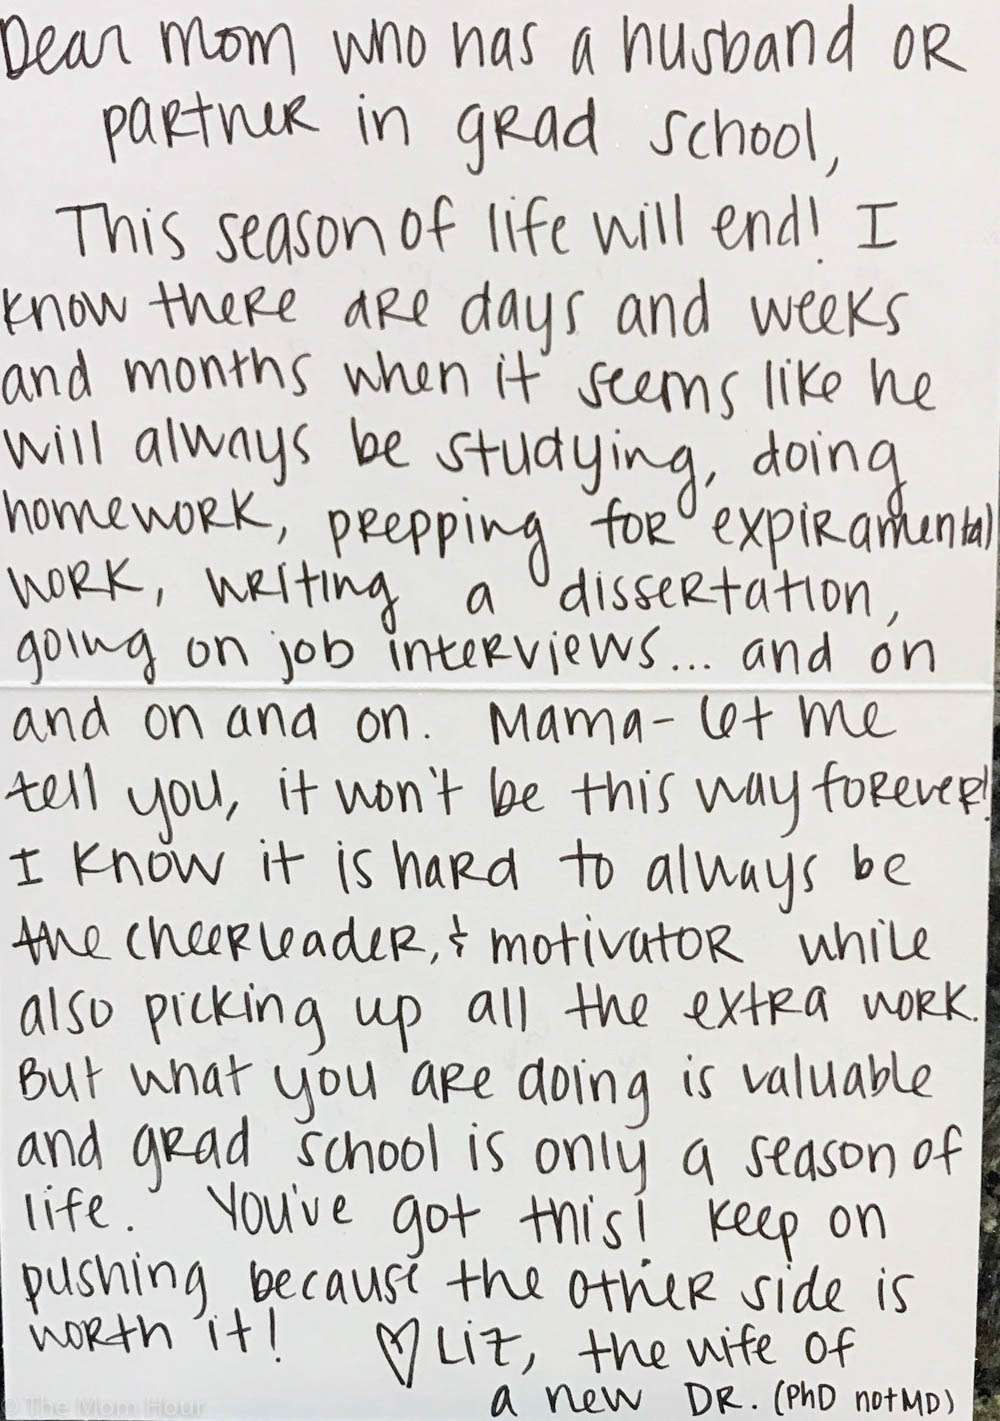 Dear mom who has a husband OR
partner in grad school,
This season of life will end! I
know there are days and weeks
and months when it seems like he
will always be studying, doing
homework, prepping for expiramental
work, writing a dissertation,
going on job interviews... and on
and on and on. Mama- let me
tell you, it won't be this way forever!
I know it is hard to always be
the cheerleader, & motivator while
also picking up all the extra work.
But what you are doing is valuable
and grad school is only a season of
life. You've got this! Keep on
pushing because the other side is
worth it! ♡ Liz, the wife of
a new DR. (PhD not MD)
© The Mom Hour